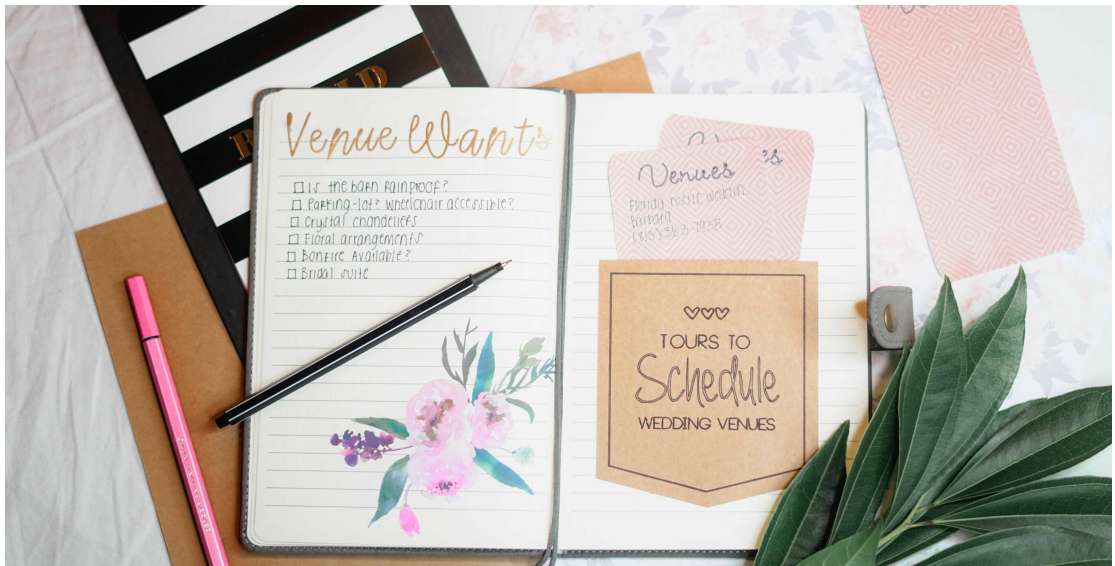 Venue Wants
Is the barn rainproof?
Parking-lot? wheelchair accessible?
Crystal chandeliers
Floral arrangements
Bonfire Available?
Bridal suite
Venues
Barbara
TOURS TO
Schedule
WEDDING VENUES